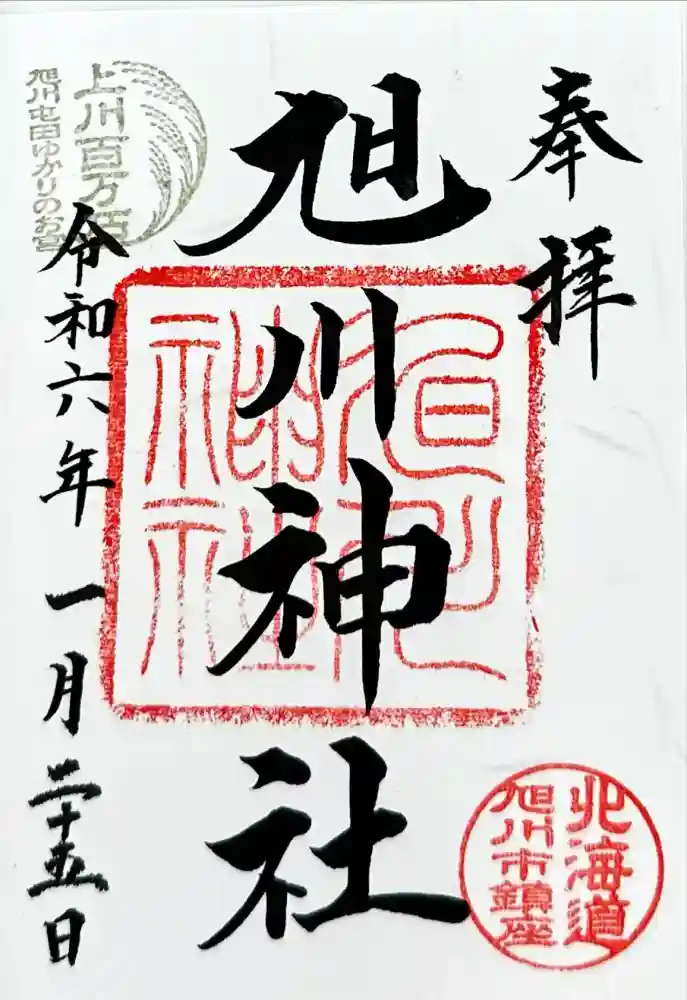 奉拝
旭川神社
旭川神社
北海道
旭川市鎮座
上川百万石
旭川屯田ゆかりのお宮
令和六年一月二十五日